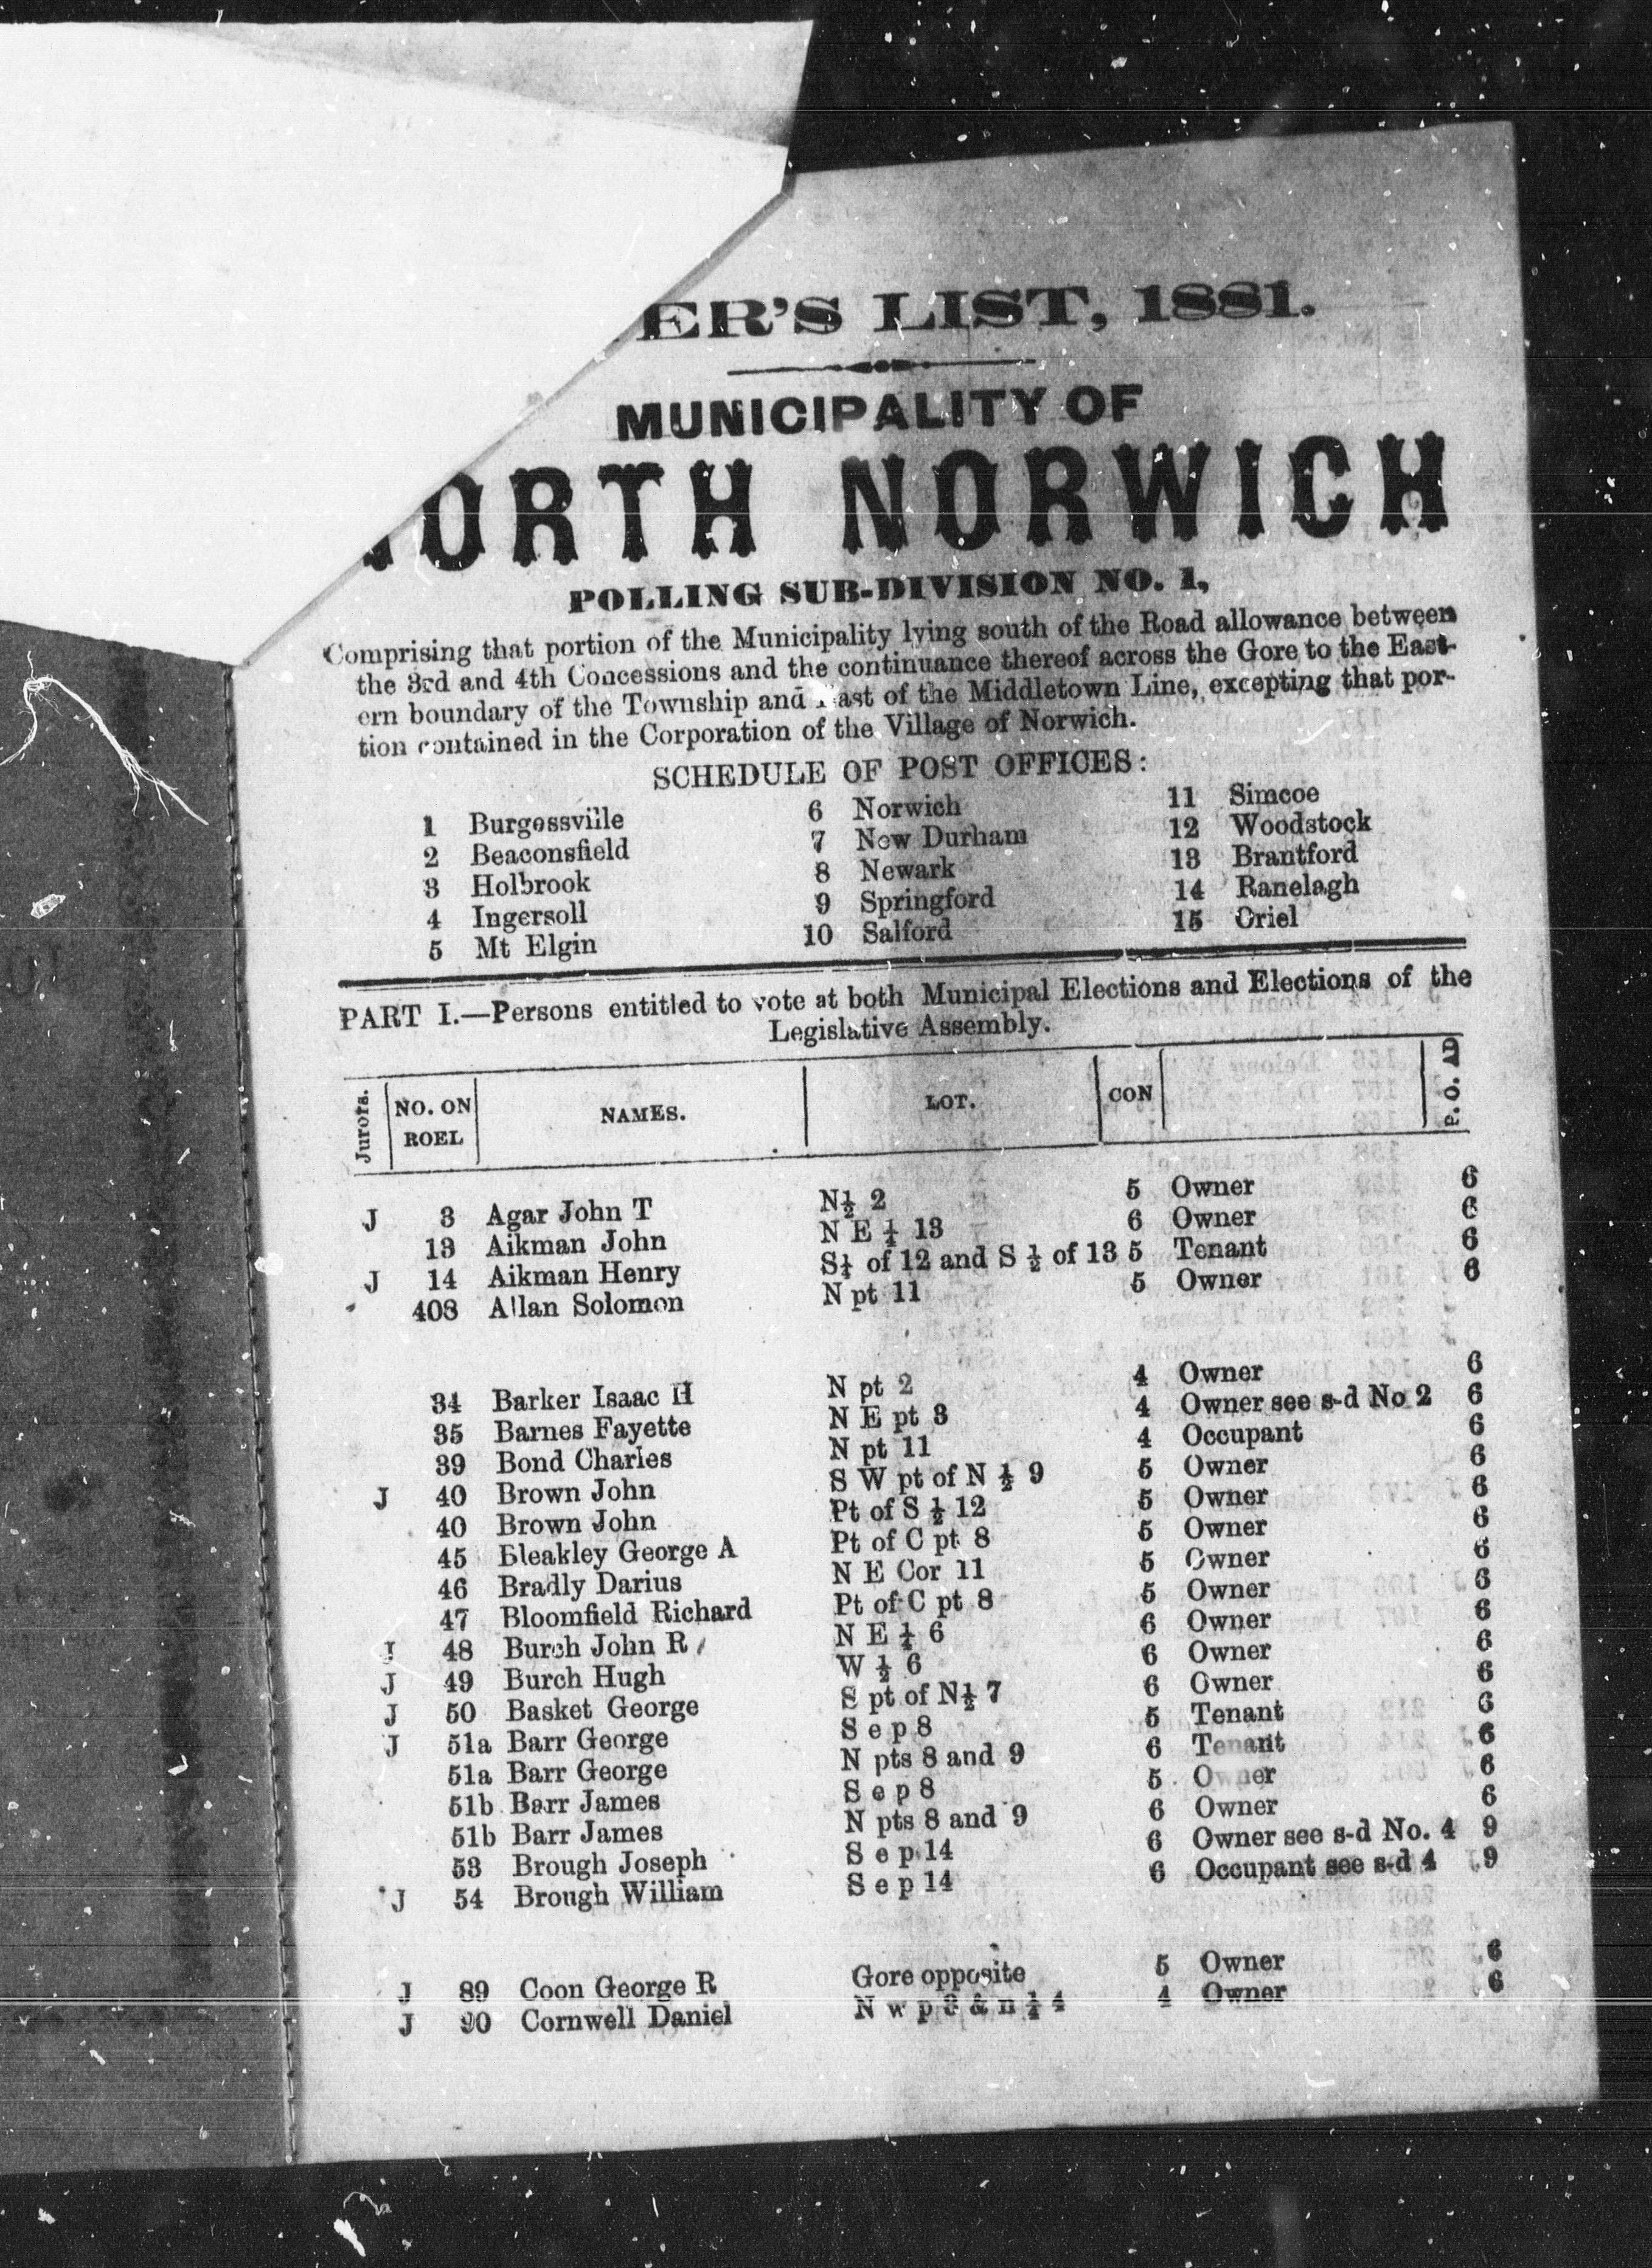 ER'S LIST, 1881.
MUNICIPALITY OF
ORTH NORWICH
POLLING SUB-DIVISION NO. 1,
Comprising that portion of the Municipality lying south of the Road allowance between
the 3rd and 4th Concessions and the continuance thereof across the Gore to the East-
ern boundary of the Township and East of the Middletown Line, excepting that por-
tion contained in the Corporation of the Village of Norwich.
SCHEDULE OF POST OFFICES:
1 Burgessville 6 Norwich 11 Simcoe
2 Beaconsfield 7 New Durham 12 Woodstock
3 Holbrook 8 Newark 13 Brantford
4 Ingersoll 9 Springford 14 Ranelagh
5 Mt Elgin 10 Salford 15 Oriel
PART I.—Persons entitled to vote at both Municipal Elections and Elections of the
Legislative Assembly.
Jurors. NO. ON ROEL NAMES. LOT. CON P. O. AD
J 3 Agar John T N½ 2 5 Owner 6
13 Aikman John N E ¼ 13 6 Owner 6
J 14 Aikman Henry S½ of 12 and S ½ of 13 5 Tenant 6
408 Allan Solomon N pt 11 5 Owner 6
34 Barker Isaac H N pt 2 4 Owner 6
35 Barnes Fayette N E pt 3 4 Owner see s-d No 2 6
39 Bond Charles N pt 11 4 Occupant 6
J 40 Brown John S W pt of N ½ 9 5 Owner 6
40 Brown John Pt of S ½ 12 5 Owner 6
45 Bleakley George A Pt of C pt 8 5 Owner 6
46 Bradly Darius N E Cor 11 5 Owner 6
47 Bloomfield Richard Pt of C pt 8 5 Owner 6
J 48 Burch John R N E ¼ 6 6 Owner 6
J 49 Burch Hugh W ½ 6 6 Owner 6
J 50 Basket George S pt of N½ 7 6 Owner 6
J 51a Barr George S e p 8 5 Tenant 6
51a Barr George N pts 8 and 9 6 Tenant 6
51b Barr James S e p 8 5 Owner 6
51b Barr James N pts 8 and 9 6 Owner 6
53 Brough Joseph S e p 14 6 Owner see s-d No. 4 9
J 54 Brough William S e p 14 6 Occupant see s-d 4 9
J 89 Coon George R Gore opposite 5 Owner 6
J 90 Cornwell Daniel N w p 3 & n ½ 4 4 Owner 6